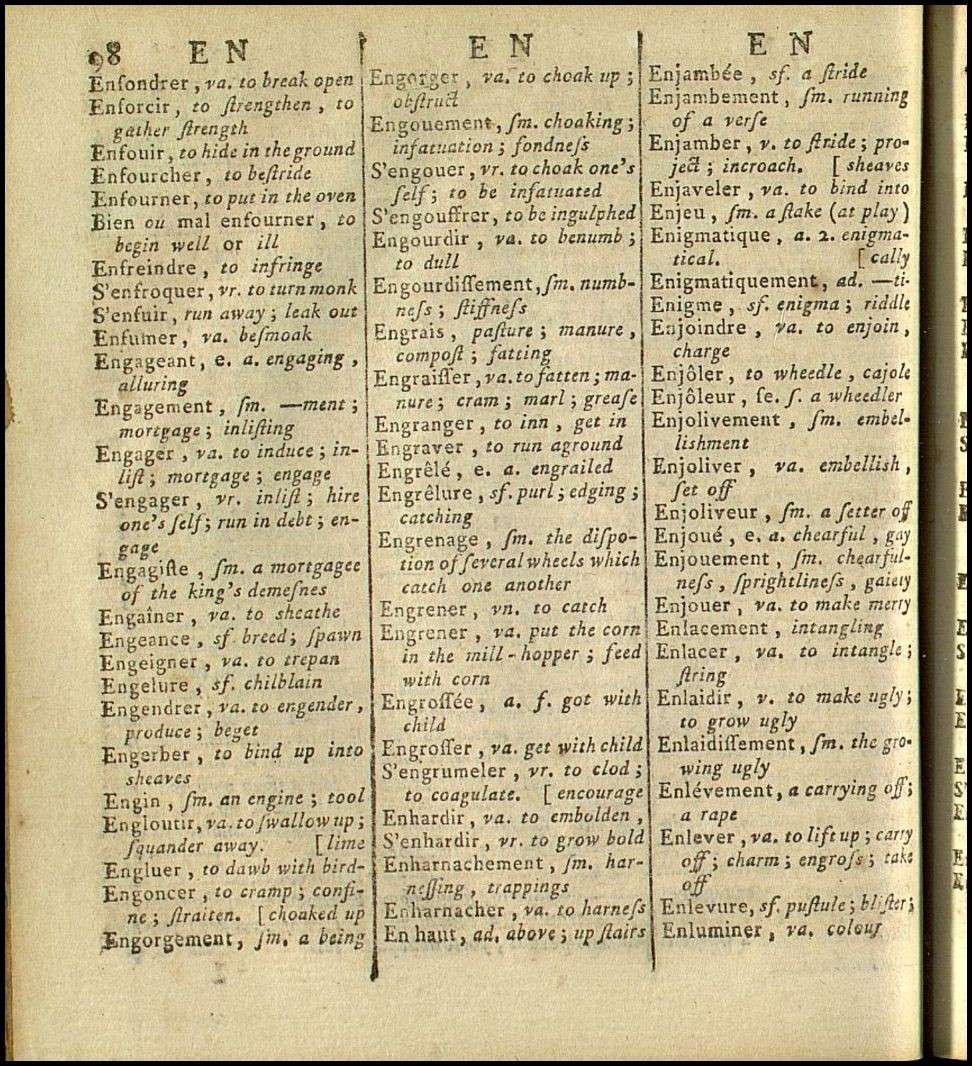 98 E N
Enfondrer, va. to break open
Enforcir, to ſtrengthen, to
gather ſtrength
Enfouir, to hide in the ground
Enfourcher, to beſtride
Enfourner, to put in the oven
Bien ou mal enfourner, to
begin well or ill
Enfreindre, to infringe
S'enfroquer, vr. to turn monk
S'enfuir, run away; leak out
Enfumer, va. beſmoak
Engageant, e. a. engaging,
alluring
Engagement, ſm. —ment;
mortgage; inliſting
Engager, va. to induce; in-
liſt; mortgage; engage
S'engager, vr. inliſt; hire
one's ſelf; run in debt; en-
gage
Engagiſte, ſm. a mortgagee
of the king's demeſnes
Engaîner, va. to sheathe
Engeance, sf. breed; ſpawn
Engeigner, va. to trepan
Engelure, sf. chilblain
Engendrer, va. to engender,
produce; beget
Engerber, to bind up into
sheaves
Engin, ſm. an engine; tool
Engloutir, va. to ſwallow up;
ſquander away. [lime
Engluer, to dawb with bird-
Engoncer, to cramp; confi-
ne; ſtraiten. [choaked up
Engorgement, ſm. a being
E N
Engorger, va. to choak up;
obſtruct
Engouement, ſm. choaking;
infatuation; fondneſs
S'engouer, vr. to choak one's
ſelf; to be infatuated
S'engouffrer, to be ingulphed
Engourdir, va. to benumb;
to dull
Engourdiſſement, ſm. numb-
neſs; ſtiffneſs
Engrais, paſture; manure,
compoſt; fatting
Engraiſſer, va. to fatten; ma-
nure; cram; marl; greaſe
Engranger, to inn, get in
Engraver, to run aground
Engrêlé, e. a. engrailed
Engrêlure, sf. purl; edging;
catching
Engrenage, ſm. the diſpo-
tion of ſeveral wheels which
catch one another
Engrener, vn. to catch
Engrener, va. put the corn
in the mill-hopper; feed
with corn
Engroſſée, a. f. got with
child
Engroſſer, va. get with child
S'engrumeler, vr. to clod;
to coagulate. [encourage
Enhardir, va. to embolden,
S'enhardir, vr. to grow bold
Enharnachement, ſm. har-
neſſing, trappings
Enharnacher, va. to harneſs
En haut, ad. above; up ſtairs
E N
Enjambée, sf. a ſtride
Enjambement, ſm. running
of a verſe
Enjamber, v. to ſtride; pro-
ject; incroach. [sheaves
Enjaveler, va. to bind into
Enjeu, ſm. a ſtake (at play)
Enigmatique, a. 2. enigma-
tical. [cally
Enigmatiquement, ad. —ti-
Enigme, sf. enigma; riddle
Enjoindre, va. to enjoin,
charge
Enjôler, to wheedle, cajole
Enjôleur, ſe. ſ. a wheedler
Enjolivement, ſm. embel-
lishment
Enjoliver, va. embellish,
ſet off
Enjoliveur, ſm. a ſetter off
Enjoué, e. a. chearful, gay
Enjouement, ſm. chearful-
neſs, ſprightlineſs, gaiety
Enjouer, va. to make merry
Enlacement, intangling
Enlacer, va. to intangle;
ſtring
Enlaidir, v. to make ugly;
to grow ugly
Enlaidiſſement, ſm. the gro-
wing ugly
Enlévement, a carrying off;
a rape
Enlever, va. to lift up; carry
off; charm; engroſs; take
off
Enlevure, sf. puſtule; bliſter;
Enluminer, va. colour